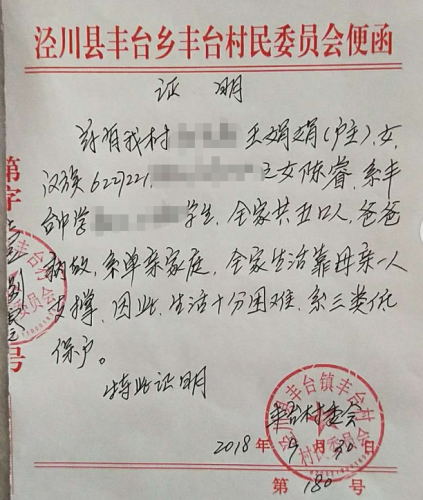 泾川县丰台乡丰台村民委员会便函
证 明
兹有我村 王娟娟(户主),女,
汉族622721 之女陈睿,系丰
台中学 学生,全家共五口人,爸爸
病故,系单亲家庭,全家生活靠母亲一人
支撑,因此,生活十分困难,系三类低
保户。
特此证明
丰台村委会
2018年9月30日
第 180 号
第 字 号
丰台镇丰台村
村民委员会